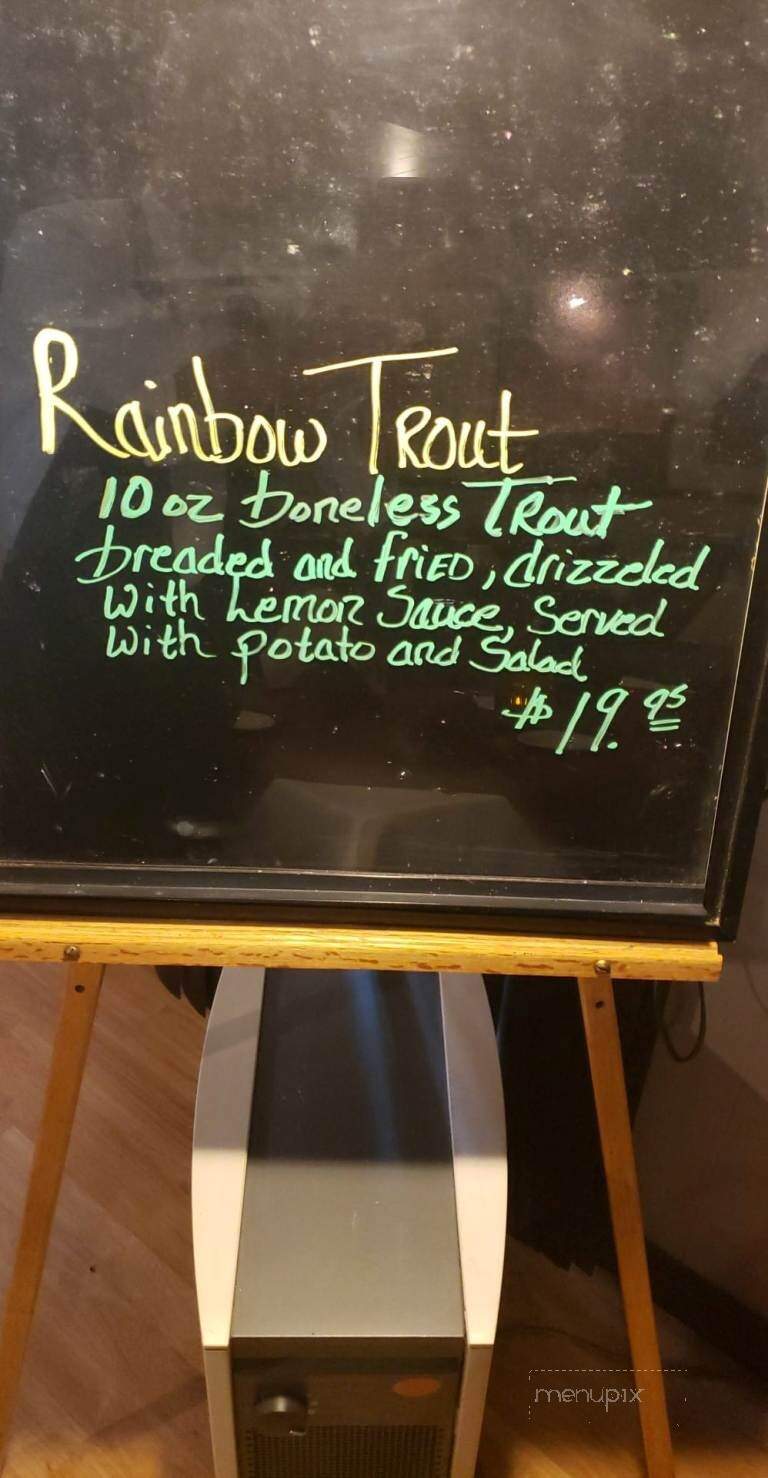 Rainbow Trout
10 oz boneless Trout
breaded and fried, drizzeled
with Lemon Sauce, Served
with potato and Salad
$19.95
menupix